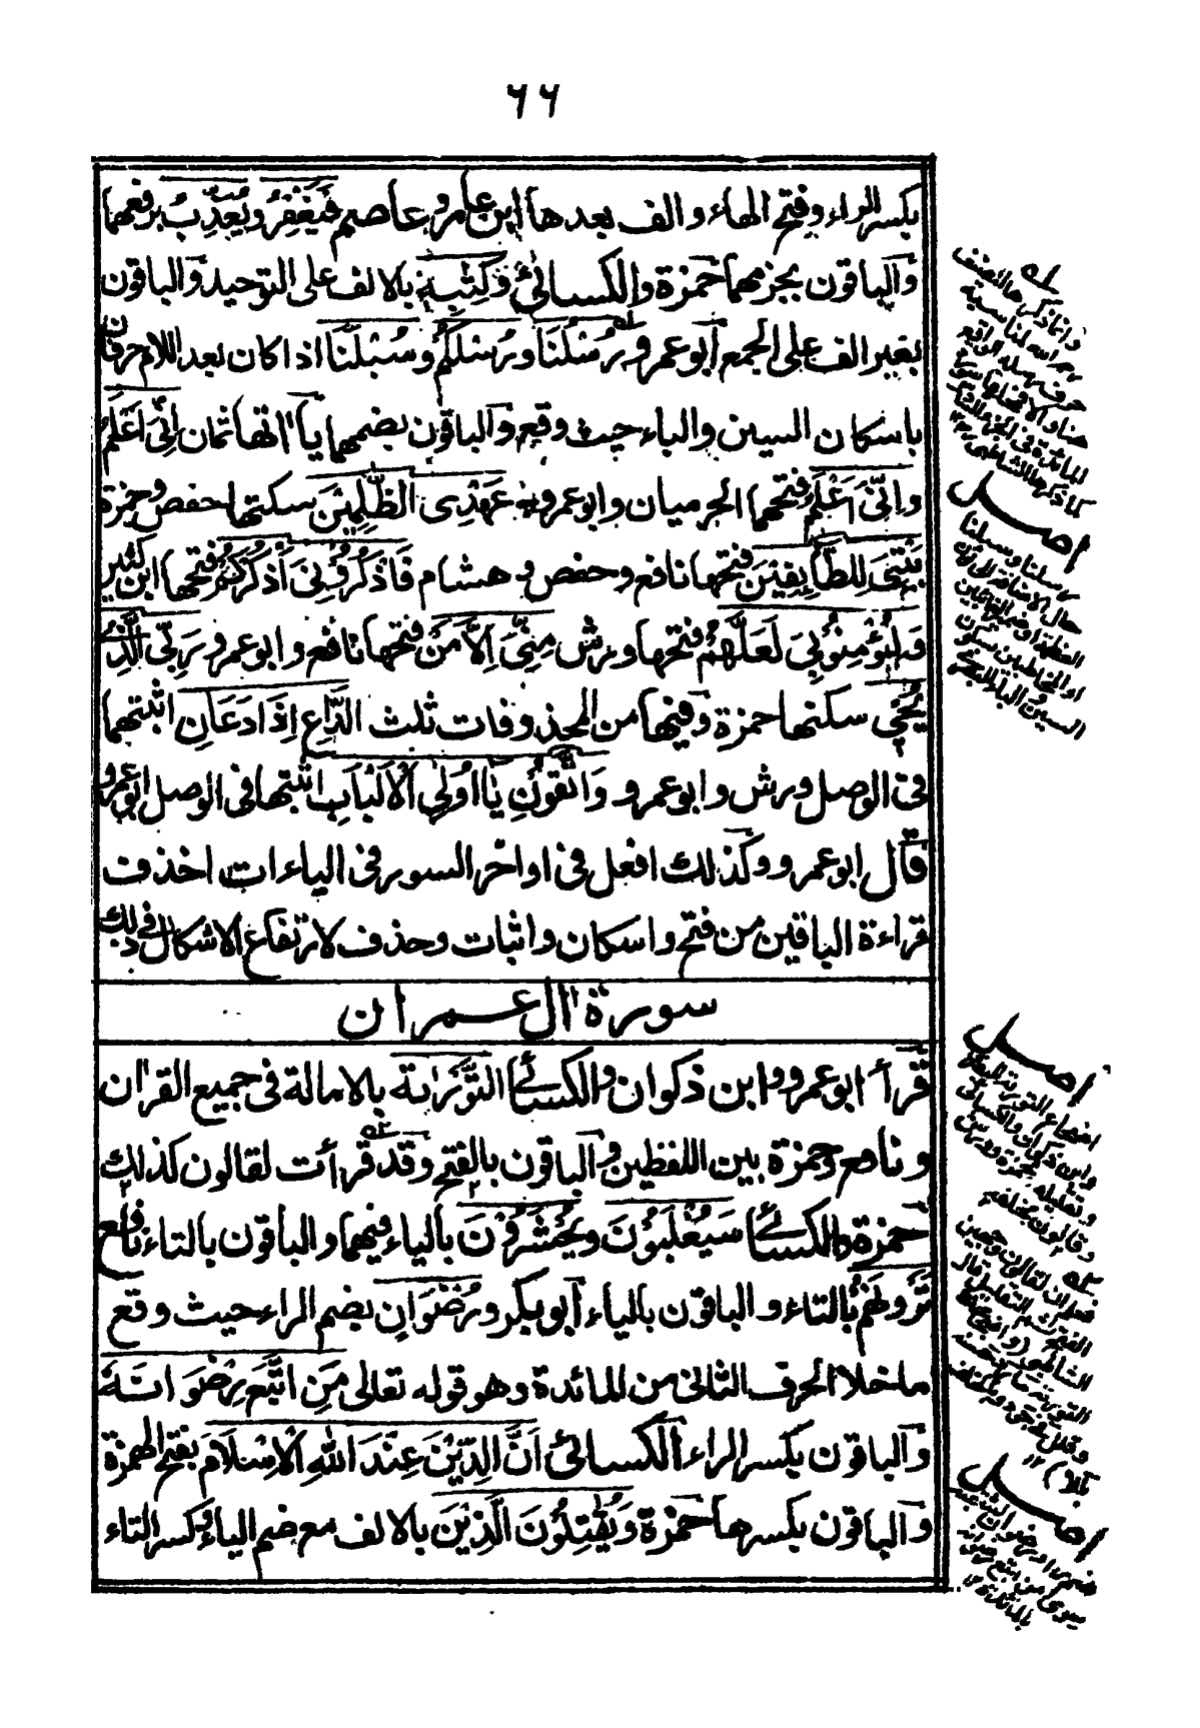 ٦٦
بكسر الراء وفتح الهاء والف بعدها ابن عامر وعاصم فَيَغْفِرُ وَيُعَذِّبُ برفعهما
والباقون بجزمهما حمزة والكسائى وَكِتٰبِهٖ بالالف على التوحيد والباقون
بغير الف على الجمع ابو عمرو رُسْلُنَا ورُسْلُكُمْ وسُبْلَنَا اذا كان بعد اللام حرفان
باسكان السين والباء حيث وقع والباقون بضمهما ياآتها ثمان اِنِّىَ اَعْلَمُ
وَاِنِّىَ اَعْلَمُ فتحهما الحرميان وابو عمرو عَهْدِى الظّٰلِمِيْنَ سكنها حفص وحمزة
بَيْتِىَ لِلطَّآئِفِيْنَ فتحها نافع وحفص وهشام فَاذْكُرُوْنِىَ اَذْكُرْكُمْ فتحها ابن كثير
وَلْيُؤْمِنُوْبِىَ لَعَلَّهُمْ فتحها ورش مِنِّىَ اِلَّا مَنْ فتحها نافع وابو عمرو رَبِّىَ الَّذِىْ
يُحْيٖى سكنها حمزة وفيها من المحذوفات ثلث الدَّاعِ اِذَا دَعَانِ اثبتهما
فى الوصل ورش وابو عمرو وَاتَّقُوْنِ يٰٓا اُولِى الْاَلْبَابِ اثبتها فى الوصل ابو عمرو
قال ابو عمرو وكذلك افعل فى اواخر السور فى الياءات اخذف
قراءة الباقين من فتح واسكان واثبات وحذف لارتفاع الاشكال فى ذلك
سورة اٰل عمران
قرأ ابو عمرو وابن ذكوان والكسائى التَّوْرٰىةَ بالامالة فى جميع القراٰن
ونافع وحمزة بين اللفظين والباقون بالفتح وقد قرأت لقالون كذلك
حمزة والكسائى سَيُغْلَبُوْنَ وَيُحْشَرُوْنَ بالياء فيهما والباقون بالتاء نافع
تَرَوْنَهُمْ بالتاء والباقون بالياء ابو بكر ورُضْوَانٌ بضم الراء حيث وقع
ماخلا الحرف الثانى من المائدة وهو قوله تعالى مَنِ اتَّبَعَ رِضْوَانَهٗ
والباقون بكسر الراء الكسائى اَنَّ الدِّيْنَ عِنْدَ اللّٰهِ الْاِسْلَامُ بفتح الهمزة
والباقون بكسرها حمزة وَيُقٰتِلُوْنَ الَّذِيْنَ بالالف مع ضم الياء وكسر التاء
وانما ذكرها المصنف
اصل
رسلنا وسبلنا
السين والباء
اصل
وابن ذكوان والكسائى
وتقليله لحمزة وورش
وقالون بخلفه
اصل